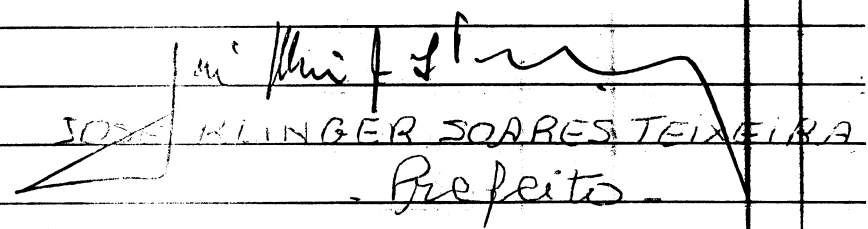 JOSÉ KLINGER SOARES TEIXEIRA
- Prefeito -